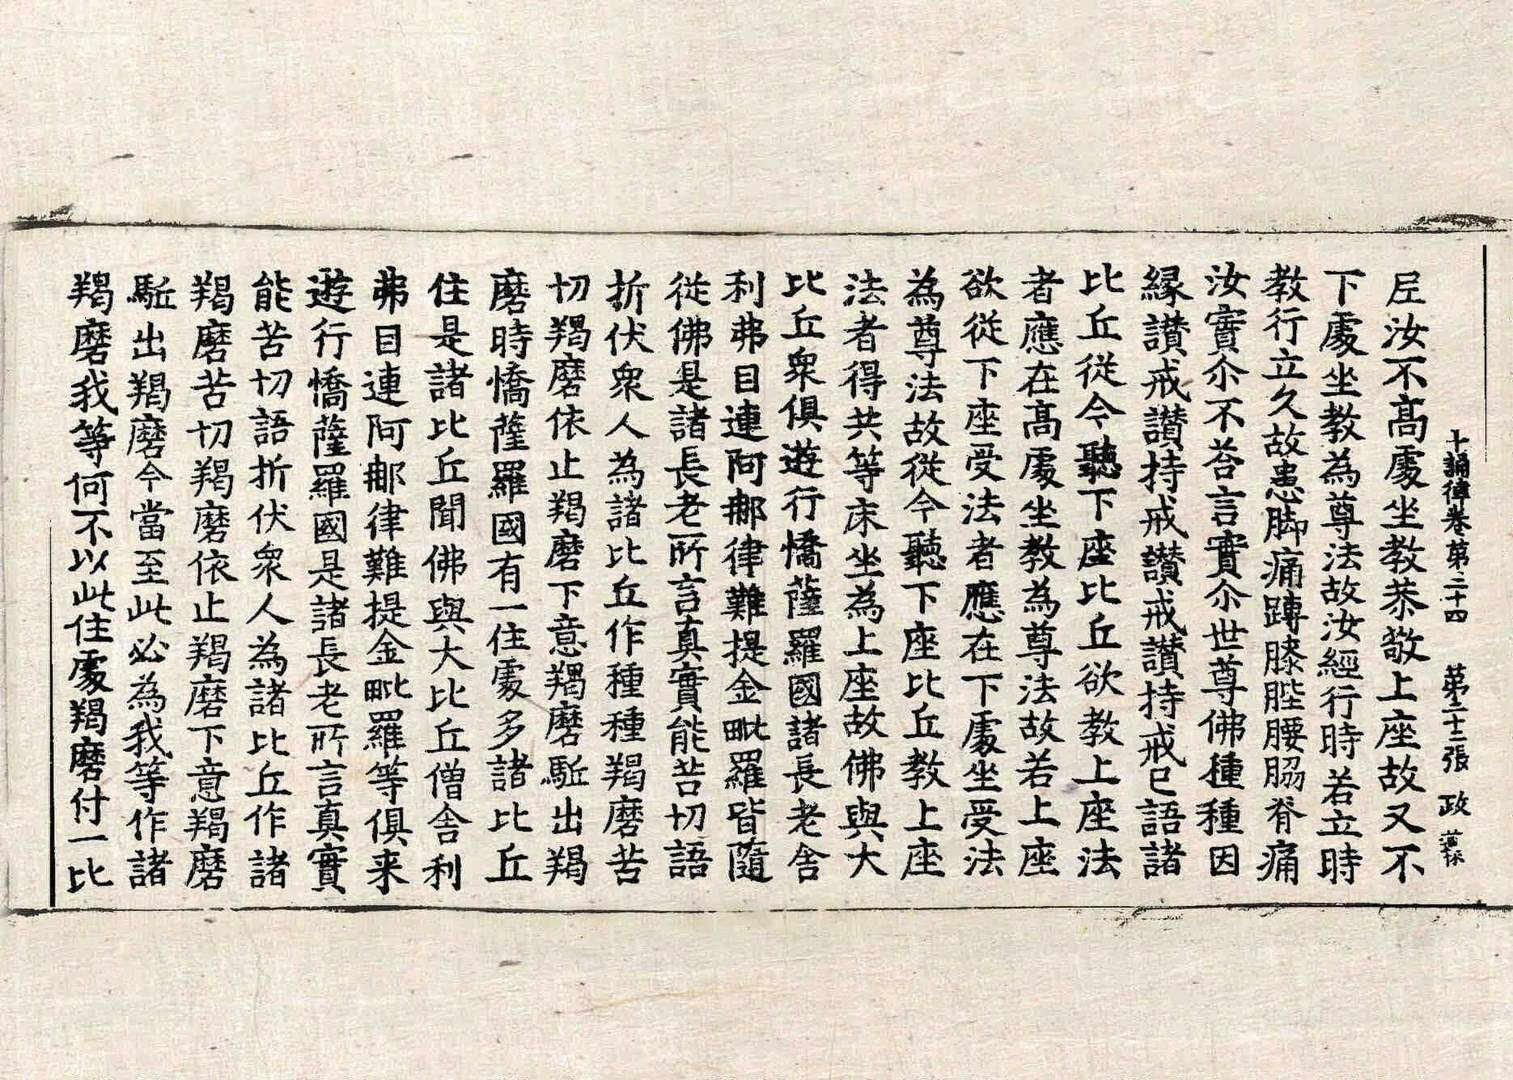 十誦律卷第三十四 第二十二張 政
㞐汝不髙處坐教恭敬上座故又不
下處坐教為尊法故汝經行時若立時
教行立久故患脚痛蹲膝䏶腰脇脊痛
汝實尒不荅言實尒世尊佛種種因
縁讃戒讃持戒讃戒讃持戒已語諸
比丘從今聽下座比丘欲教上座法
者應在髙處坐教為尊法故若上座
欲從下座受法者應在下處坐受法
為尊法故從今聽下座比丘教上座
法者得共等床坐為上座故佛與大
比丘衆俱遊行憍薩羅國諸長老舍
利弗目連阿那律難提金毗羅皆隨
從佛是諸長老所言真實能苦切語
折伏衆人為諸比丘作種種羯磨苦
切羯磨依止羯磨下意羯磨駈出羯
磨時憍薩羅國有一住處多諸比丘
住是諸比丘聞佛與大比丘僧舍利
弗目連阿那律難提金毗羅等俱来
遊行憍薩羅國是諸長老所言真實
能苦切語折伏衆人為諸比丘作諸
羯磨苦切羯磨依止羯磨下意羯磨
駈出羯磨今當至此必為我等作諸
羯磨我等何不以此住處羯磨付一比